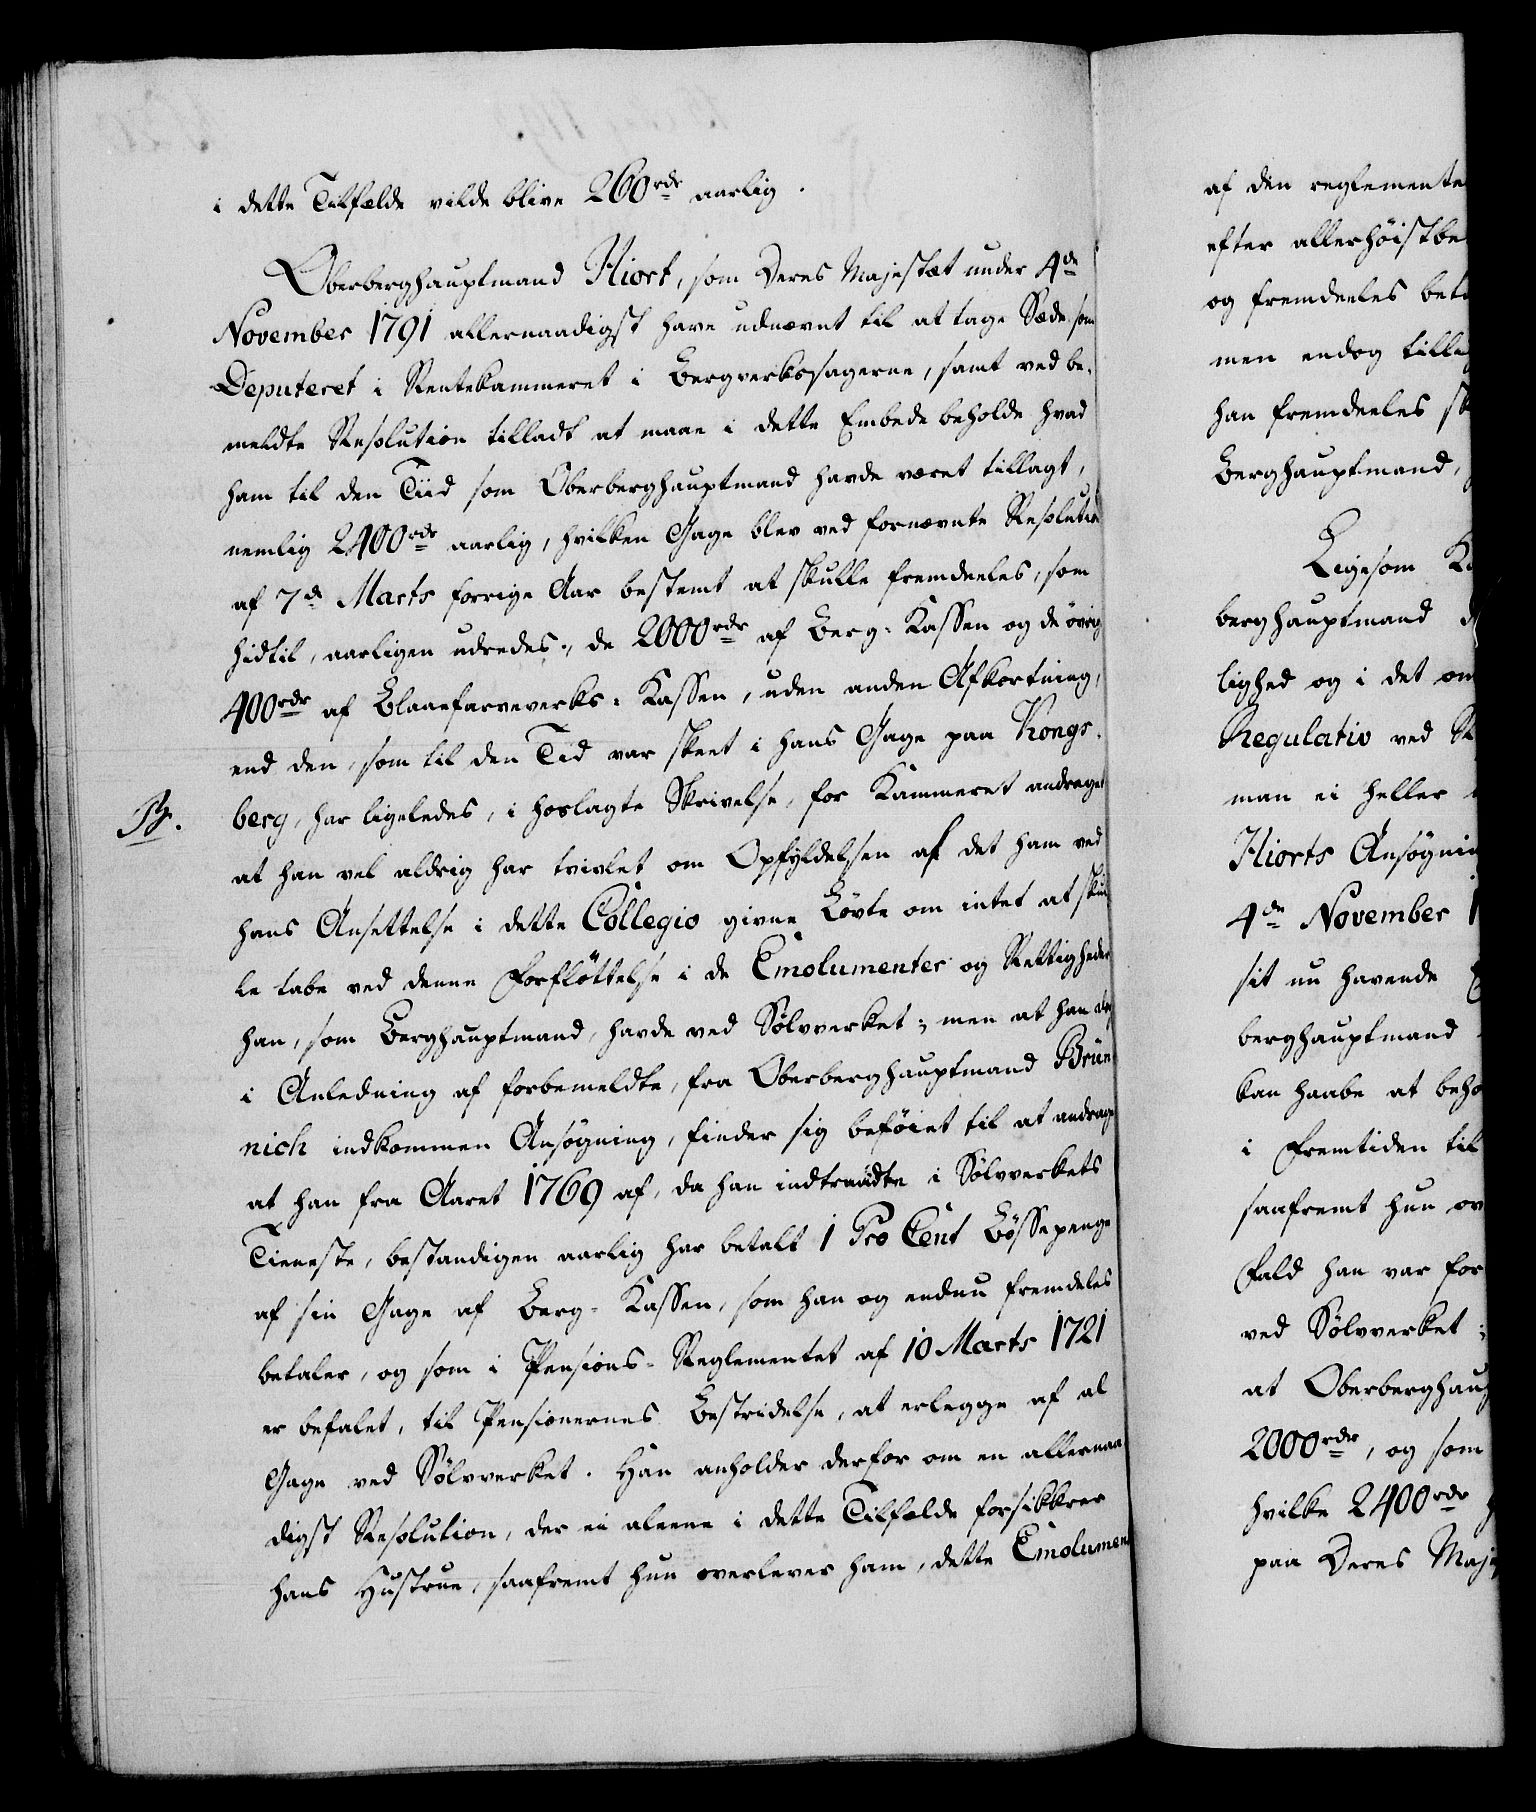 i dette Tilfælde vilde blive 260rdr aarlig.
Oberberghauptmand Hiort, som Deres Majestæt under 4de
November 1791 allernaadigst have udnævnt til at tage Sæde som
Deputeret i Rentekammeret i Bergverkssagerne, samt ved be-
meldte Resolution tilladt at maae i dette Embede beholde hvad
ham til den Tiid som Oberberghauptmand havde været tillagt,
nemlig 2400rdr aarlig, hvilken Gage blev ved fornævnte Resolution
af 7de Marts forrige Aar bestemt at skulle fremdeeles, som
hidtil, aarligen udredes, de 2000rdr af Berg-Kassen og de øvrig
400rdr af Blaaefarveverks-Kassen, uden anden Afkortning,
end den, som til den Tid var skeet i hans Gage paa Kongs-
B. berg, har ligeledes, i hoslagte Skrivelse, for Kammeret andraget
at han vel aldrig har tvivlet om Opfyldelsen af det ham ved
hans Ansettelse i dette Collegio givne Løvte om intet at skul
le tabe ved denne Forfløttelse i de Emolumenter og Rettigheder
han, som Berghauptmand, havde ved Sølvverket; men at han
i Anledning af forbemeldte, fra Oberberghauptmand Brün
nich indkommen Ansøgning, finder sig beføiet til at andrage
at han fra Aaret 1769 af, da han indtraadte i Sølvverkets
Tieneste, bestandigen aarlig har betalt 1 Pro Cent Bøssepenge
af sin Gage af Berg-Kassen, som han og endnu fremdeles
betaler, og som i Pensions-Reglementet af 10 Marts 1721
er befalet, til Pensionernes Bestridelse, at erlegge af al
Gage ved Sølvverket. Han anholder derfor om en allernaa
digst Resolution, der ei aleene i dette Tilfælde forsikkrer
hans Hustrue, saafremt hun overlever ham, dette Emolument
af den reglemente
efter allerhøistbe
og fremdeeles beta
men endog tilleg
han fremdeeles sk
Berghauptmand,
Ligesom
berghauptmand
lighed og i det om
Regulativ ved
man ei heller
Hiorts Ansøgnin
4de November 1
sit nu havende
berghauptmand
kan haabe at beho
i Fremtiden til
saafremt hun ov
Fald han var for
ved Sølvverket;
at Oberberghaup
2000rdr, og som
hvilke 2400rdr
paa Deres Maje